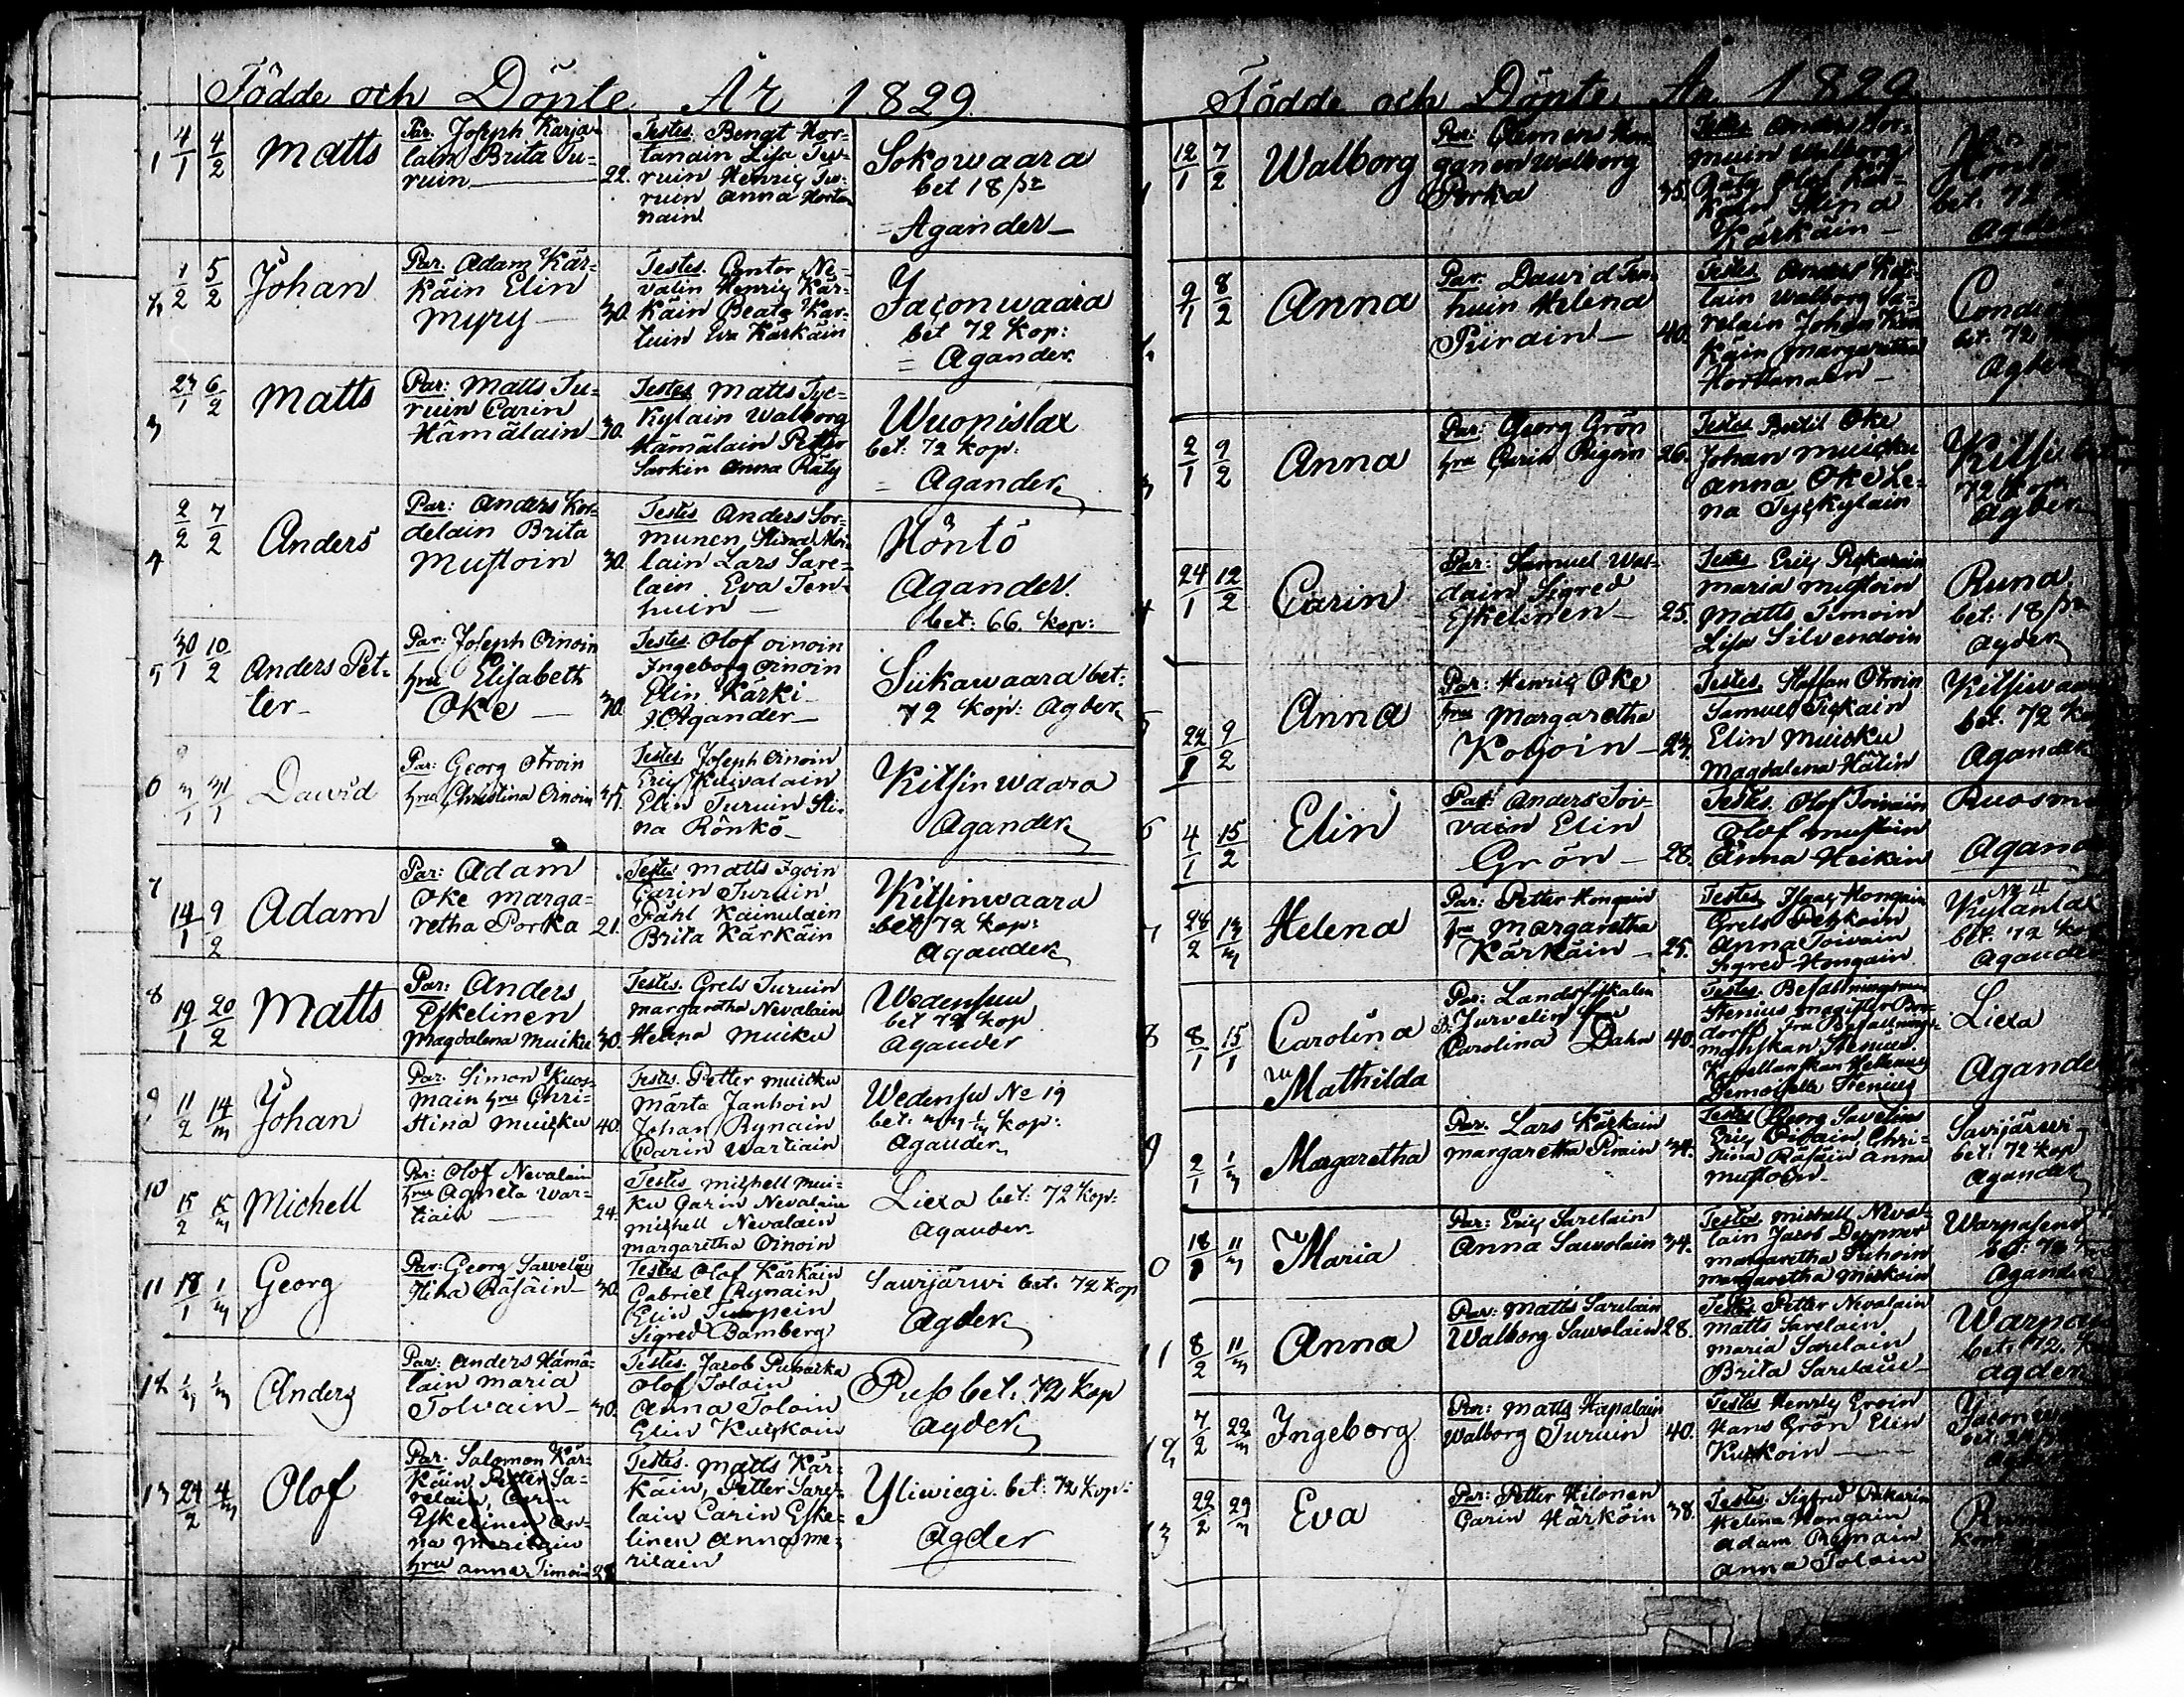 Födde och Döpte År 1829.
1 4/1 4/2 Matts
Par. Joseph Karja-
lain Brita Tu-
ruin 22.
Testes. Bengt Hor-
tanain Lisa Tur-
ruin Henric Tur-
ruin Anna Horta-
nain
Sokowaara
bet 18
Agander
2 1/2 5/2 Johan
Par. Adam Kär-
käin Elin
Myry 30.
Testes. Cantor Ne-
valin Henric Kär-
käin Beata Kar-
tuin Eva Kärkäin
Jaconwaara
bet 72 kop:
Agander
3 27/1 6/2 Matts
Par: Matts Tu-
ruin Carin
Hämäläin 30.
Testes Matts Tyc-
kyläin Walborg
Hämäläin Petter
Sarkin Anna Räty
Wuonislax
bet: 72 kop:
Agander
4 2/2 7/2 Anders
Par: Anders Kor-
delain Brita
Mustoin 30.
Testes Anders Sor-
munen Stina
lain Lars Sare-
lain Eva Ten-
huin
Höntö
Agander.
bet: 66. kop:
5 30/1 10/2 Anders Pet-
ter
Par: Joseph Oinoin
hru Elisabeth
Oke 30.
Testes. Olof Oinoin
Ingeborg Oinoin
Elin Kärki
Agander
Siikawaara bet:
72 kop: Agder
6 31/1 Dawid
Par: Georg Otroin
hru Christina Oinoin 35.
Testes. Joseph Oinoin
Eric
Elin Turuin Sti-
na Rönkö
Kitsinwaara
Agander
7 14/1 9/2 Adam
Par: Adam
Oke Marga-
retha Porka 21.
Testes Matts Igoin
Carin Turuin
Påhl Kainulain
Brita Kärkäin
Kitsinwaara
bet 72 kop:
Agander
8 19/1 20/2 Matts
Par: Anders
Eskelinen
Magdalena Muiku 30.
Testes. Grels Turuin
Margaretha Nevalain
Helena Muiku
Wedensuu
bet 72 kop
Agander
9 11/2 14/3 Johan
Par. Simon Kuos-
main hru Chri-
stina Muicku 40.
Testes. Petter Muicku
Märta Janhoin
Johan Rynain
Carin Wartiain
Wedensu No 19
bet: kop:
Agander
10 15/2 15/3 Michell
Par: Olof Nevalain
hru Agneta War-
tiain 24.
Testes Mishell Mui-
ku Carin Nevalain
Mishell Nevalain
Margaretha Oinoin
Liexa bet: 72 kop:
Agander
11 18/1 1/3 Georg
Par: Georg Sawelius
Stina Räsäin 30.
Testes Olof Kärkäin
Gabriel Rynain
Elin Turpein
Sigred Bamberg
Sawijärwi bet. 72 kop
Agder
12 Anders
Par: Anders Hämä-
lain Maria
Tolvain 30.
Testes. Jacob Puharka
Olof Tolain
Anna Tolain
Elin Kuckoin
Puso bet: 72 kop
Agder
13 24/2 4/3 Olof
Par. Salomon Kär-
käin Petter Sa-
relain, Carin
Eskelinen An-
na Merilain
hru Anna Timoin 28
Testes. Matts Kär-
käin, Petter Sare-
lain Carin Eske-
linen Anna Me-
rilain
Yliwiegi bet: 72 kop:
Agder
Födde och Döpte År 1829
12/1 7/2 Walborg
Par: Clemens
ganen Walborg
Porka 35.
Testes Anders Sor-
muin Walborg
Räty Olof Kär-
käin Stina
Kärkäin
bet: 72
9/1 8/2 Anna
Par. Dawid Ten-
huin Helena
Piirain 40.
Testes Anders
lain Walborg Sa-
relain Johan Kär-
käin Margaretha
Hortanain
bet. 72
Agder
3 2/1 9/2 Anna
Par: Georg Grön
hru Carin 26.
Testes Bertil Oke
Johan Muicku
Anna Oke Le-
na Tyckyläin
72 kop
Agder
4 24/1 12/2 Carin
Par: Samuel Wat-
dain Sigred
Eskelinen 25.
Testes Eric Pickarain
Maria Mustoin
Matts Timoin
Lisa Silvendoin
Runa
bet: 18
Agder
5 22/1 9/2 Anna
Par: Henric Oke
hru Margaretha
Koljoin 27.
Testes, Staffan Otroin
Samuel
Elin Muicku
Magdalena Hätin
Kitsiwaara
bet. 72 kop
Agander
6 4/1 15/2 Elin
Par: Anders Toi-
vain Elin
Grön 28.
Testes. Olof Toivain
Olof Mustoin
Anna Heikin
Agander
7 28/2 13/3 Helena
Par: Petter Hongain
hru Margaretha
Kärkäin 25.
Testes, Isaac Hongain
Grels Petzkoin
Anna Toivain
Sigred Hongain
No 4
Kylänlax
bet. 72 kop
Agander
8 8/1 15/1 Carolina
Mathilda
Par: Landsfiskalen
D: Jurvelin hru
Carolina Dahn 40.
Testes. Befallningsman
Stenius Magister
dorff, fru Befallnings-
manskan Stenius.
Kapellanskan Hellenius
Demoiselle Stenius
Liexa
Agander
9 2/1 1/3 Margaretha
Par. Lars Kärkäin
Margaretha Pirain 34.
Testes Georg Savelius
Eric Piirain, Chri-
stina Räsäin Anna
Mustoin
Savijärwi
bet: 72 kop
Agander
18/1 11/3 Maria
Par: Eric Sarelain
Anna Sawolain 34.
Testes Mishell Neva-
lain Jacob
Margaretha
Margaretha Miskoin
bet: 72
Agander
11 8/2 11/3 Anna
Par: Matts Sarelain
Walborg Sawolain 28.
Testes Petter Nevalain
Matts Sarelain
Maria Sarelain
Brita Sarelain
bet: 72. kop
Agder
12 7/2 22/3 Ingeborg
Par: Matts Kapalain
Walborg Turuin 40.
Testes Henric Eroin
Hans Grön Elin
Kuckoin
13 22/2 29/3 Eva
Par: Petter Hilonen
Carin Härköin 38.
Testes. Sigfred Pickarin
Helena Hongain
Adam Rynain
Anna Tolain